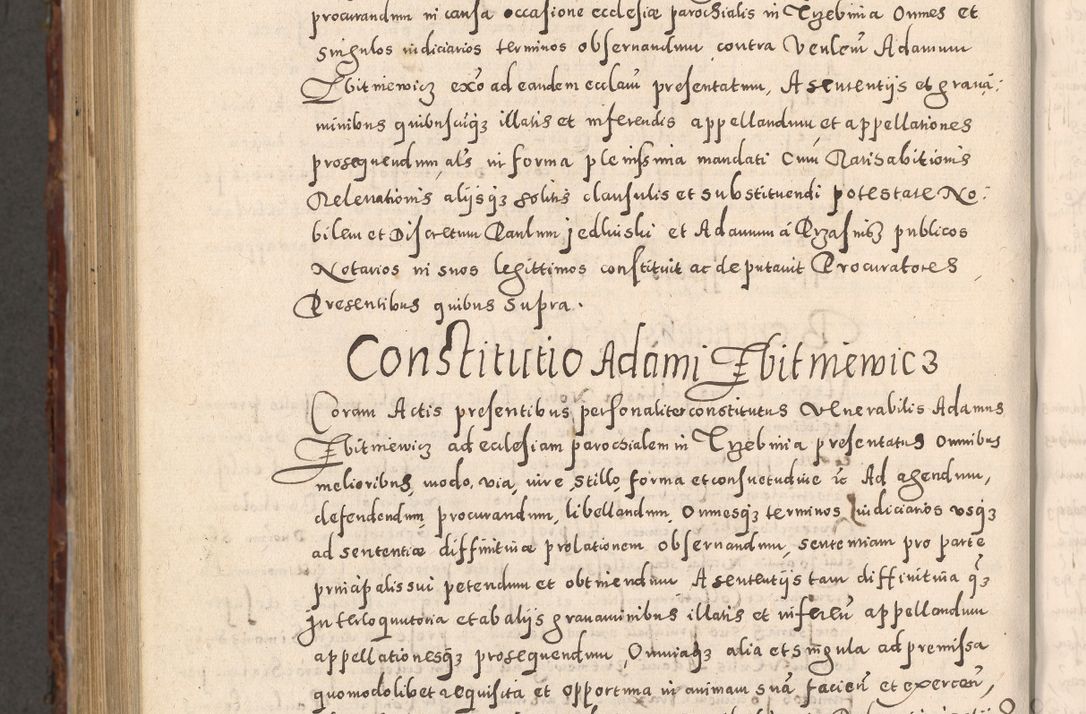 procurandum in causa occasione ecclesiæ parochialis in Trzebinia Omnes et
singulos iudiciarios terminos observandum contra Venlem̃ Adamum
Zbitniewicz exõ ad eandem ecclam̃ presentatum, A sententijs et gravã:
minibus quibuscũqz illatis et inferendis appellandum et appellationes
prosequendum, als in forma plenissimia mandati Cum̃ Ratihabitionis
Relevationis alijsqz solitis clausulis et substituendi potestate No:
bilem et Discretum Paulum jedlinski et Adamum à Przasnisz publicos
Notarios in suos legittimos constituit ac deputavit Procuratores,
Presentibus quibus supra.
Constitutio Adami Zbitniewicz
Coram Actis presentibus personaliter constitutus Venerabilis Adamus
Zbitniewicz ad ecclesiam parochialem in Trzebinia presentatus omnibus
melioribus, modo, via, iure, stillo, forma et consuetudine &c Ad agendum,
defendendum, procurandum, libellandum, Omnesqz terminos Iudiciarios usqz
ad sententiæ diffinitivæ prolationem observandum, sententiam pro parte
principalis sui petendum et obtinendum A sententijs tam diffinitiva q̃z
Interloquutoria et ab alijs gravaminibus illatis et inferen̄ appellandum
appellationesqz prosequendum, Omniaqz alia et singula ad premissa
quomodolibet requisita et opportuna in animam suã facien̄ et exercen̄,